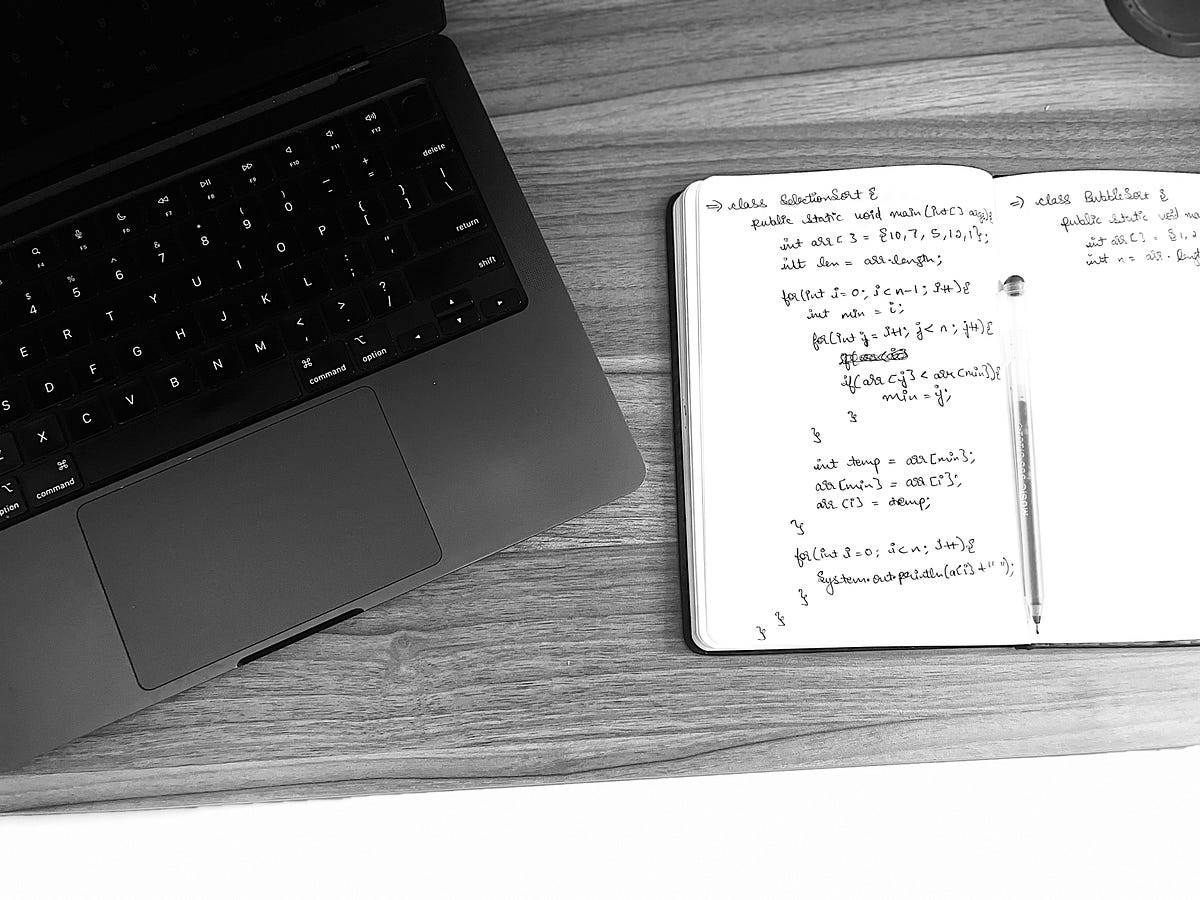 F4
F5
F6
F7
F8
F9
F10
F11
F12
$
4
%
5
^
6
&
7
*
8
(
9
)
0
_
-
+
=
delete
E
R
T
Y
U
I
O
P
{
[
}
]
|
\
S
D
F
G
H
J
K
L
:
;
"
'
return
X
C
V
B
N
M
<
,
>
.
?
/
shift
command
command
option
→ class SelectionSort {
public static void main(int[] args){
int arr[] = {10,7,5,12,1};
int len = arr.length;
for(int i=0; i<n-1; i++){
int min = i;
for(int j=i+1; j<n; j++){
if(arr[j] < arr[min]){
min = j;
}
}
int temp = arr[min];
arr[min] = arr[i];
arr[i] = temp;
}
for(int i=0; i<n; i++){
System.out.println(a[i]+" ");
}
}
}
→ class BubbleSort {
public static void ma
int arr[] = {1, 2
int n = arr.lengt